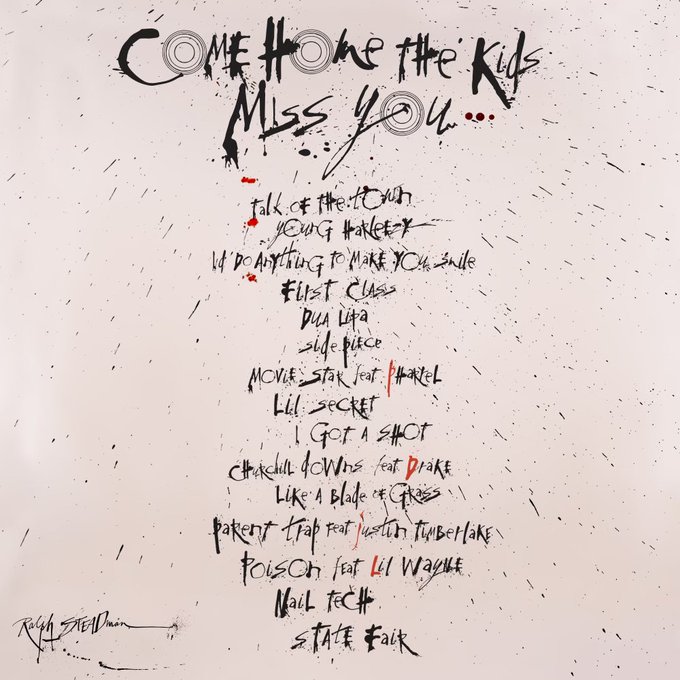 COME HOME THE KiDS
MISS YOU...
talk OF THE town
YOUNG HARLEEZY
I'd DO ANYTHING TO MAKE YOU Smile
First Class
DUA LipA
side piece
MOVIE STAR feat PHARREL
LiL SECRET
I GOT A SHOT
CHURCHILL dOWNS feat DRAKE
LIKE A Blade OF GRASS
PARENT trap FEAT justin TIMBERLAKE
POISON feat LiL WAYNE
NAIL TECH
STATE FAIR
RALPH STEADman